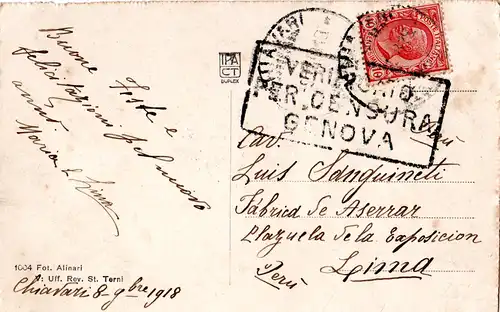 Buone Feste e
felicitazioni pel nuovo
anno
Maria L.
IPA
CT
DUPLEX
CHIAVARI
VERIFICATO
PER CENSURA
GENOVA
Cav.
Luis Sanguineti
Fábrica de Aserrar
Plazuela de la Exposicion
Lima
Perú
1004 Fot. Alinari
Uff. Rev. St. Terni
Chiavari 8-9bre 1918